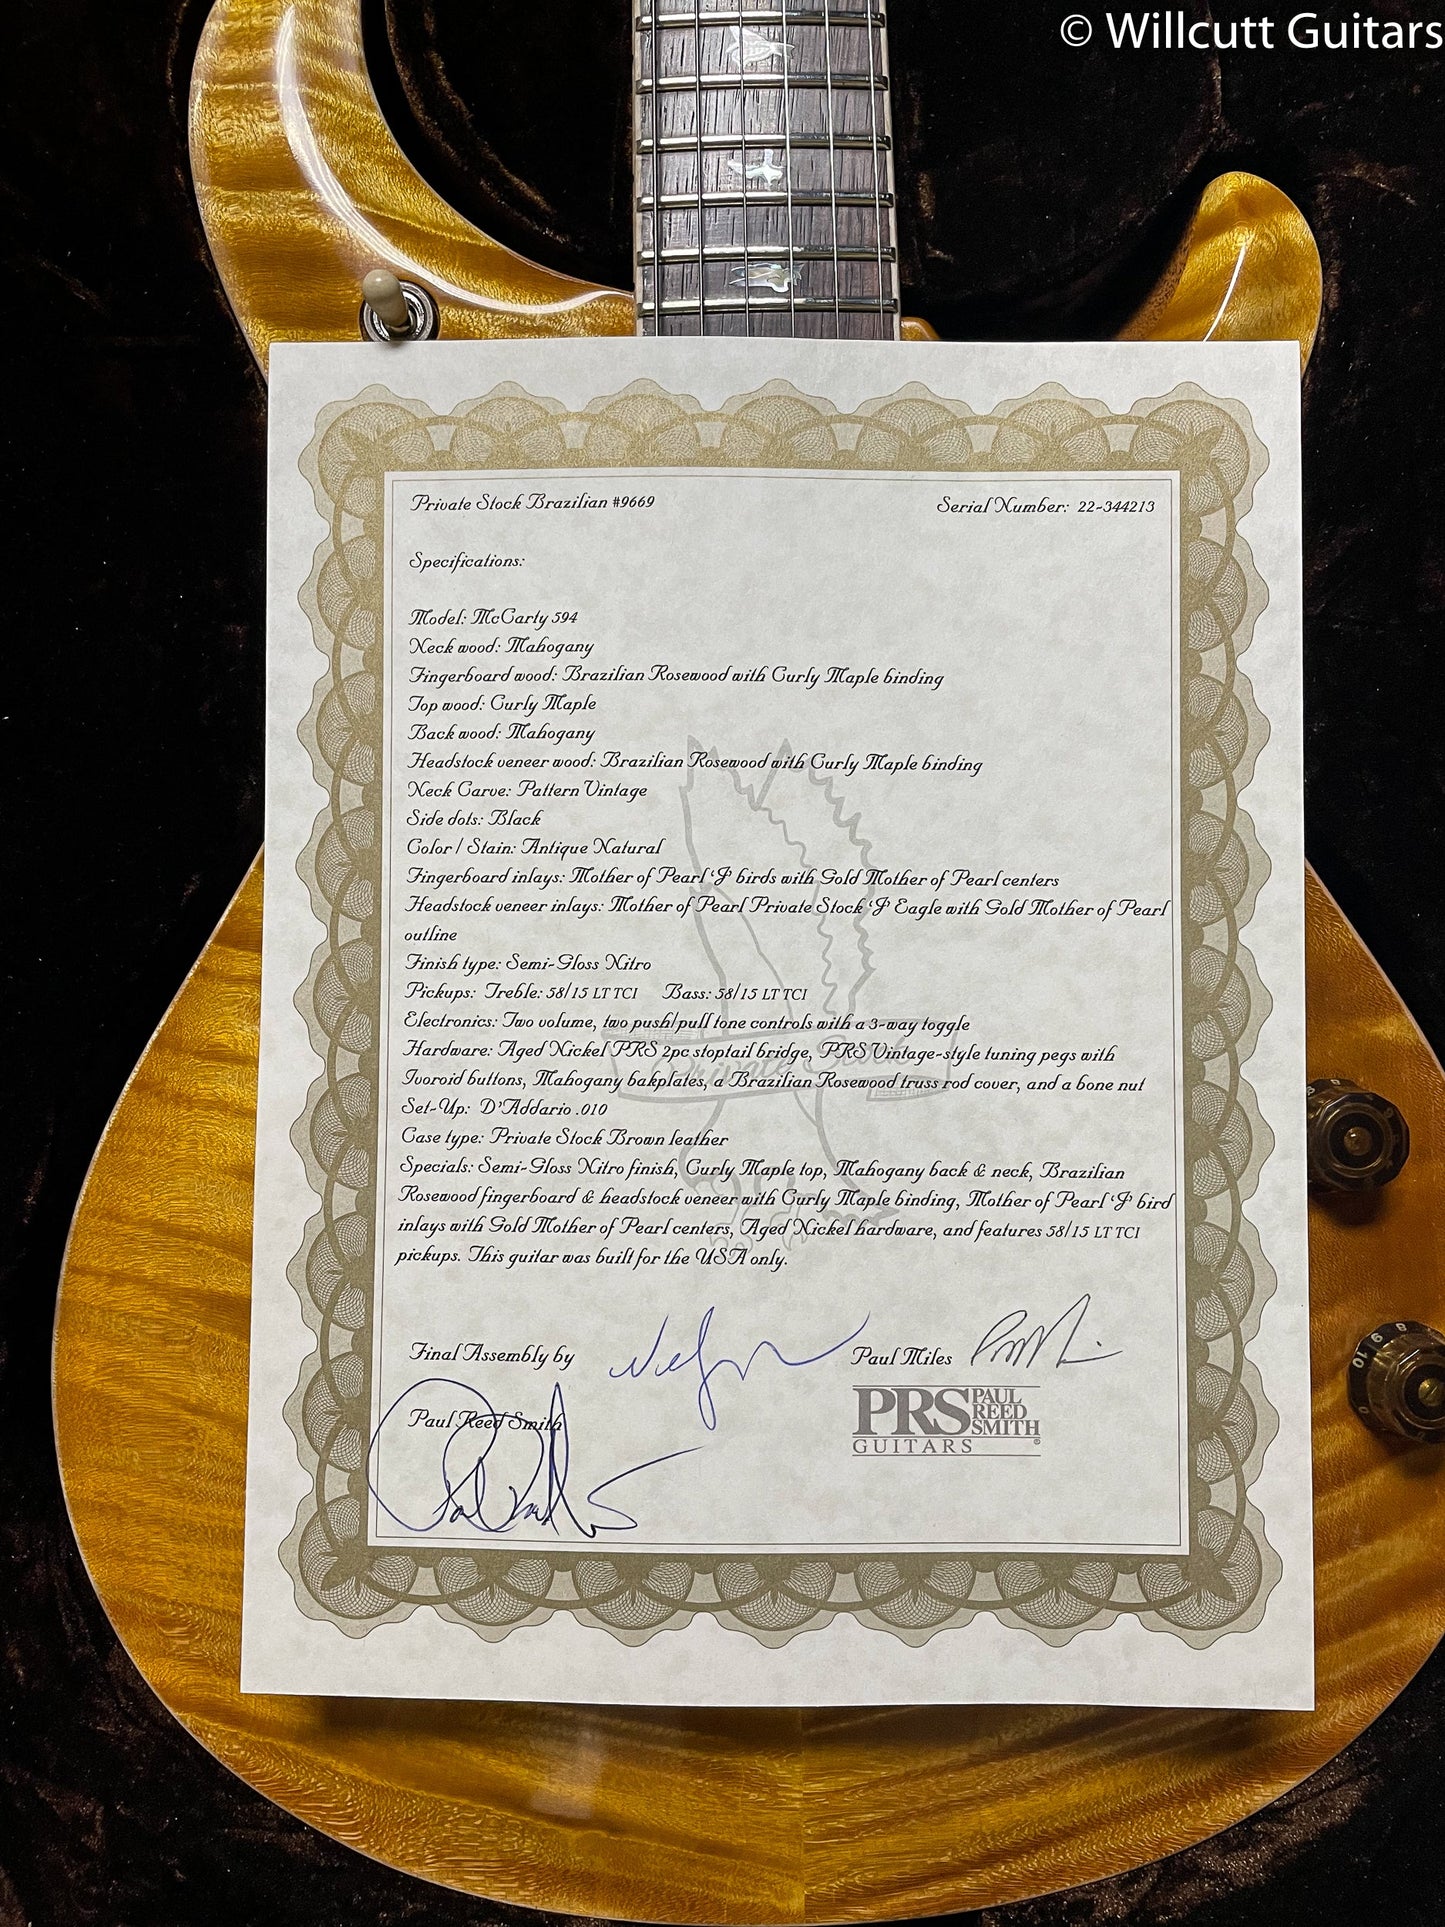 © Willcutt Guitars
Private Stock Brazilian #9669
Serial Number: 22-344213
Specifications:
Model: McCarty 594
Neck wood: Mahogany
Fingerboard wood: Brazilian Rosewood with Curly Maple binding
Top wood: Curly Maple
Back wood: Mahogany
Headstock veneer wood: Brazilian Rosewood with Curly Maple binding
Neck Carve: Pattern Vintage
Side dots: Black
Color / Stain: Antique Natural
Fingerboard inlays: Mother of Pearl 'J' birds with Gold Mother of Pearl centers
Headstock veneer inlays: Mother of Pearl Private Stock 'J' Eagle with Gold Mother of Pearl
outline
Finish type: Semi-Gloss Nitro
Pickups: Treble: 58/15 LT TCI Bass: 58/15 LT TCI
Electronics: Two volume, two push/pull tone controls with a 3-way toggle
Hardware: Aged Nickel PRS 2pc stoptail bridge, PRS Vintage-style tuning pegs with
Ivoroid buttons, Mahogany bakplates, a Brazilian Rosewood truss rod cover, and a bone nut
Private Stock
Set-Up: D'Addario .010
Case type: Private Stock Brown leather
Specials: Semi-Gloss Nitro finish, Curly Maple top, Mahogany back & neck, Brazilian
Rosewood fingerboard & headstock veneer with Curly Maple binding, Mother of Pearl 'J' bird
inlays with Gold Mother of Pearl centers, Aged Nickel hardware, and features 58/15 LT TCI
pickups. This guitar was built for the USA only.
Final Assembly by
Paul Miles
Paul Reed Smith
PRS PAUL
REED
SMITH
GUITARS ®
10 9 8